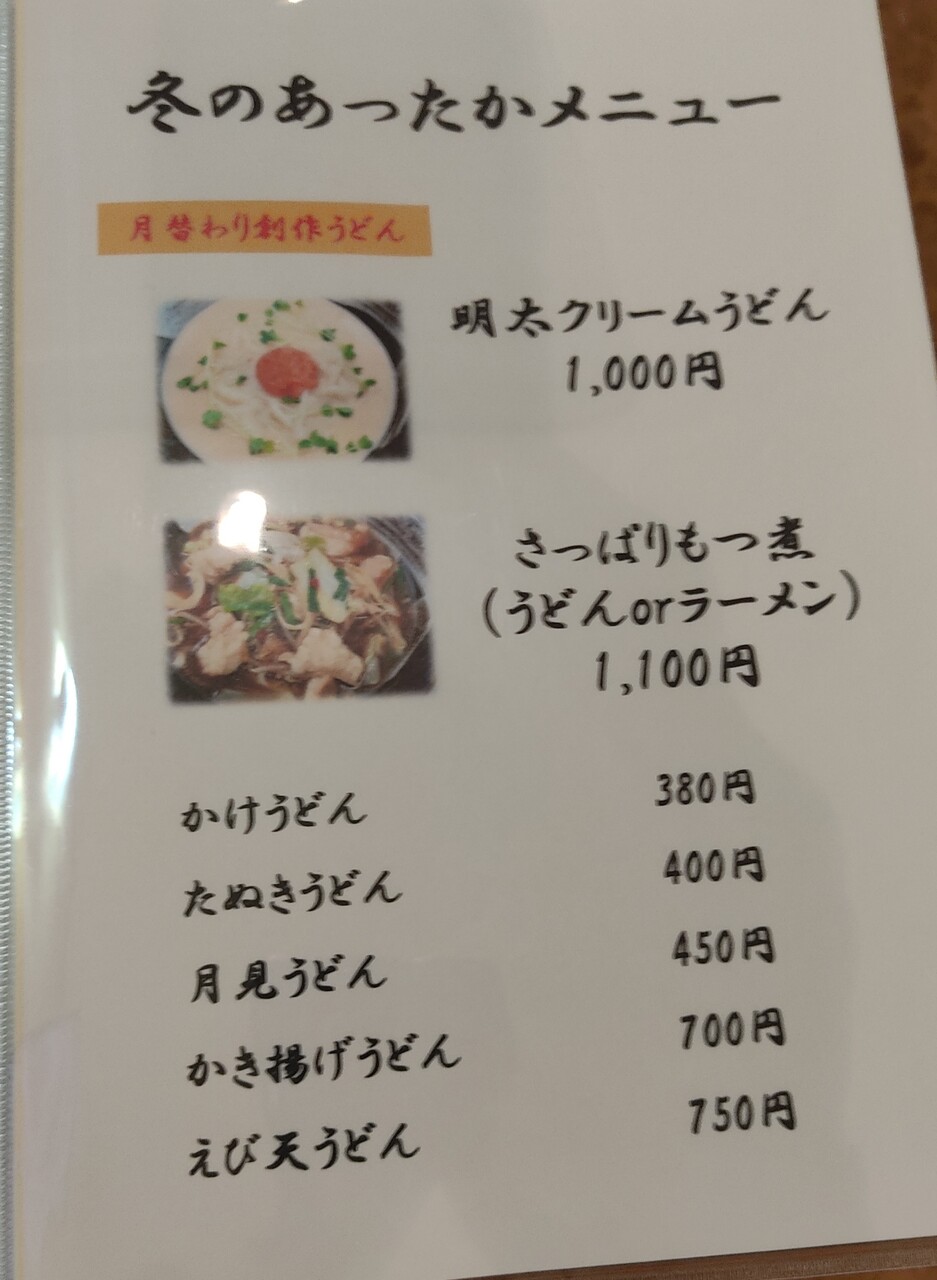 冬のあったかメニュー
月替わり創作うどん
明太クリームうどん
1,000円
さっぱりもつ煮
(うどんorラーメン)
1,100円
かけうどん 380円
たぬきうどん 400円
月見うどん 450円
かき揚げうどん 700円
えび天うどん 750円